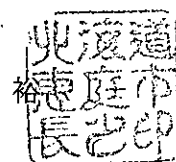 北海道
裕
恵庭市
長之印